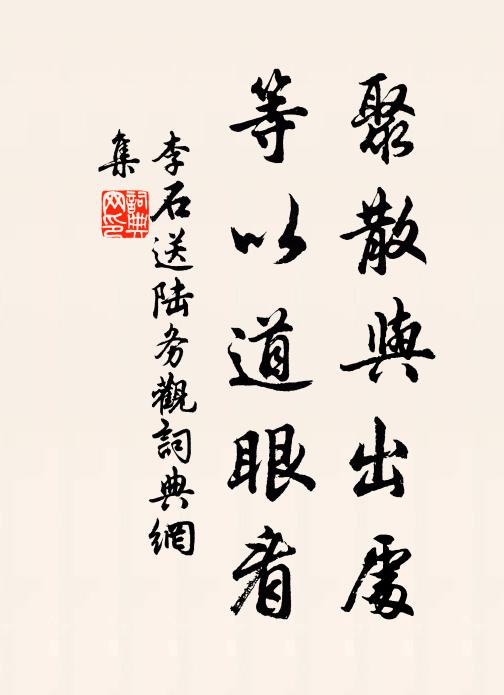 聚散與出處
等以道眼看
李石送陆务觀詞典網
集
詞典網印